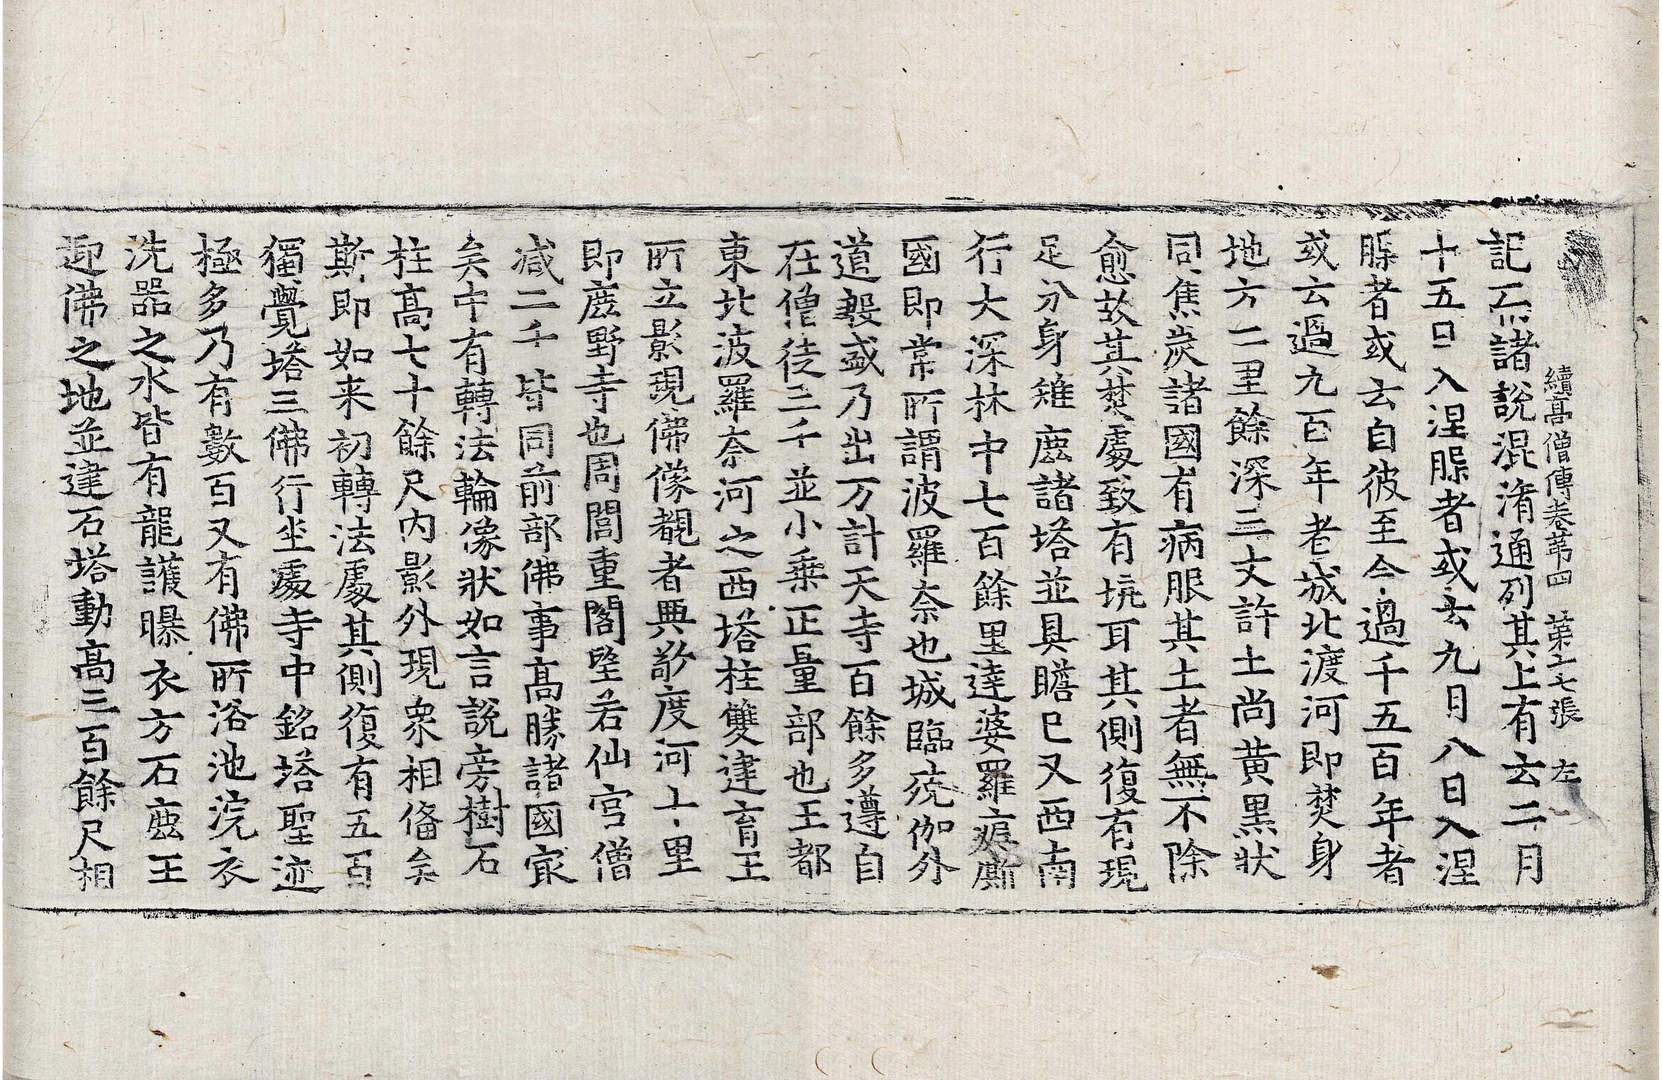 續高僧傳卷苐四　苐二七張　左
記不同諸說混淆通列其上有云二月
十五日入涅脤者或云九月八日入涅
脤者或云自彼至今過千五百年者
或云過九百年老城北渡河即焚身
地方二里餘深三丈許土尚黃黑狀
同焦炭諸國有病服其土者無不除
愈故其焚處致有坑耳其側復有現
足分身雉鹿諸塔並具瞻已又西南
行大深林中七百餘里達婆羅痆廝
國即常所謂波羅奈也城臨殑伽外
道殷盛乃出万計天寺百餘多遵自
在僧徒三千並小乗正量部也王都
東北波羅奈河之西塔柱雙建育王
所立影現佛像覩者興敬度河十里
即鹿野寺也周閭重閣望若仙宮僧
減二千皆同前部佛事高勝諸國冣
矣中有轉法輪像狀如言說旁樹石
柱高七十餘尺內影外現衆相俻矣
斯即如来初轉法處其側復有五百
獨覺塔三佛行坐處寺中銘塔聖迹
極多乃有數百又有佛所浴池浣衣
洗器之水皆有龍護曝衣方石鹿王
迎佛之地並建石塔動高三百餘尺相